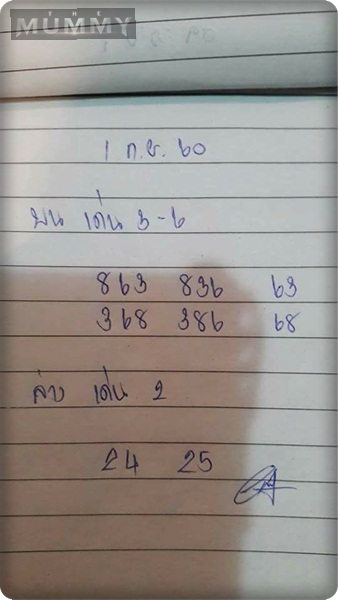 MUMMY
1 ก.ย. 60
บน เด่น 3-6
863 836 63
368 386 68
ล่าง เด่น 2
24 25